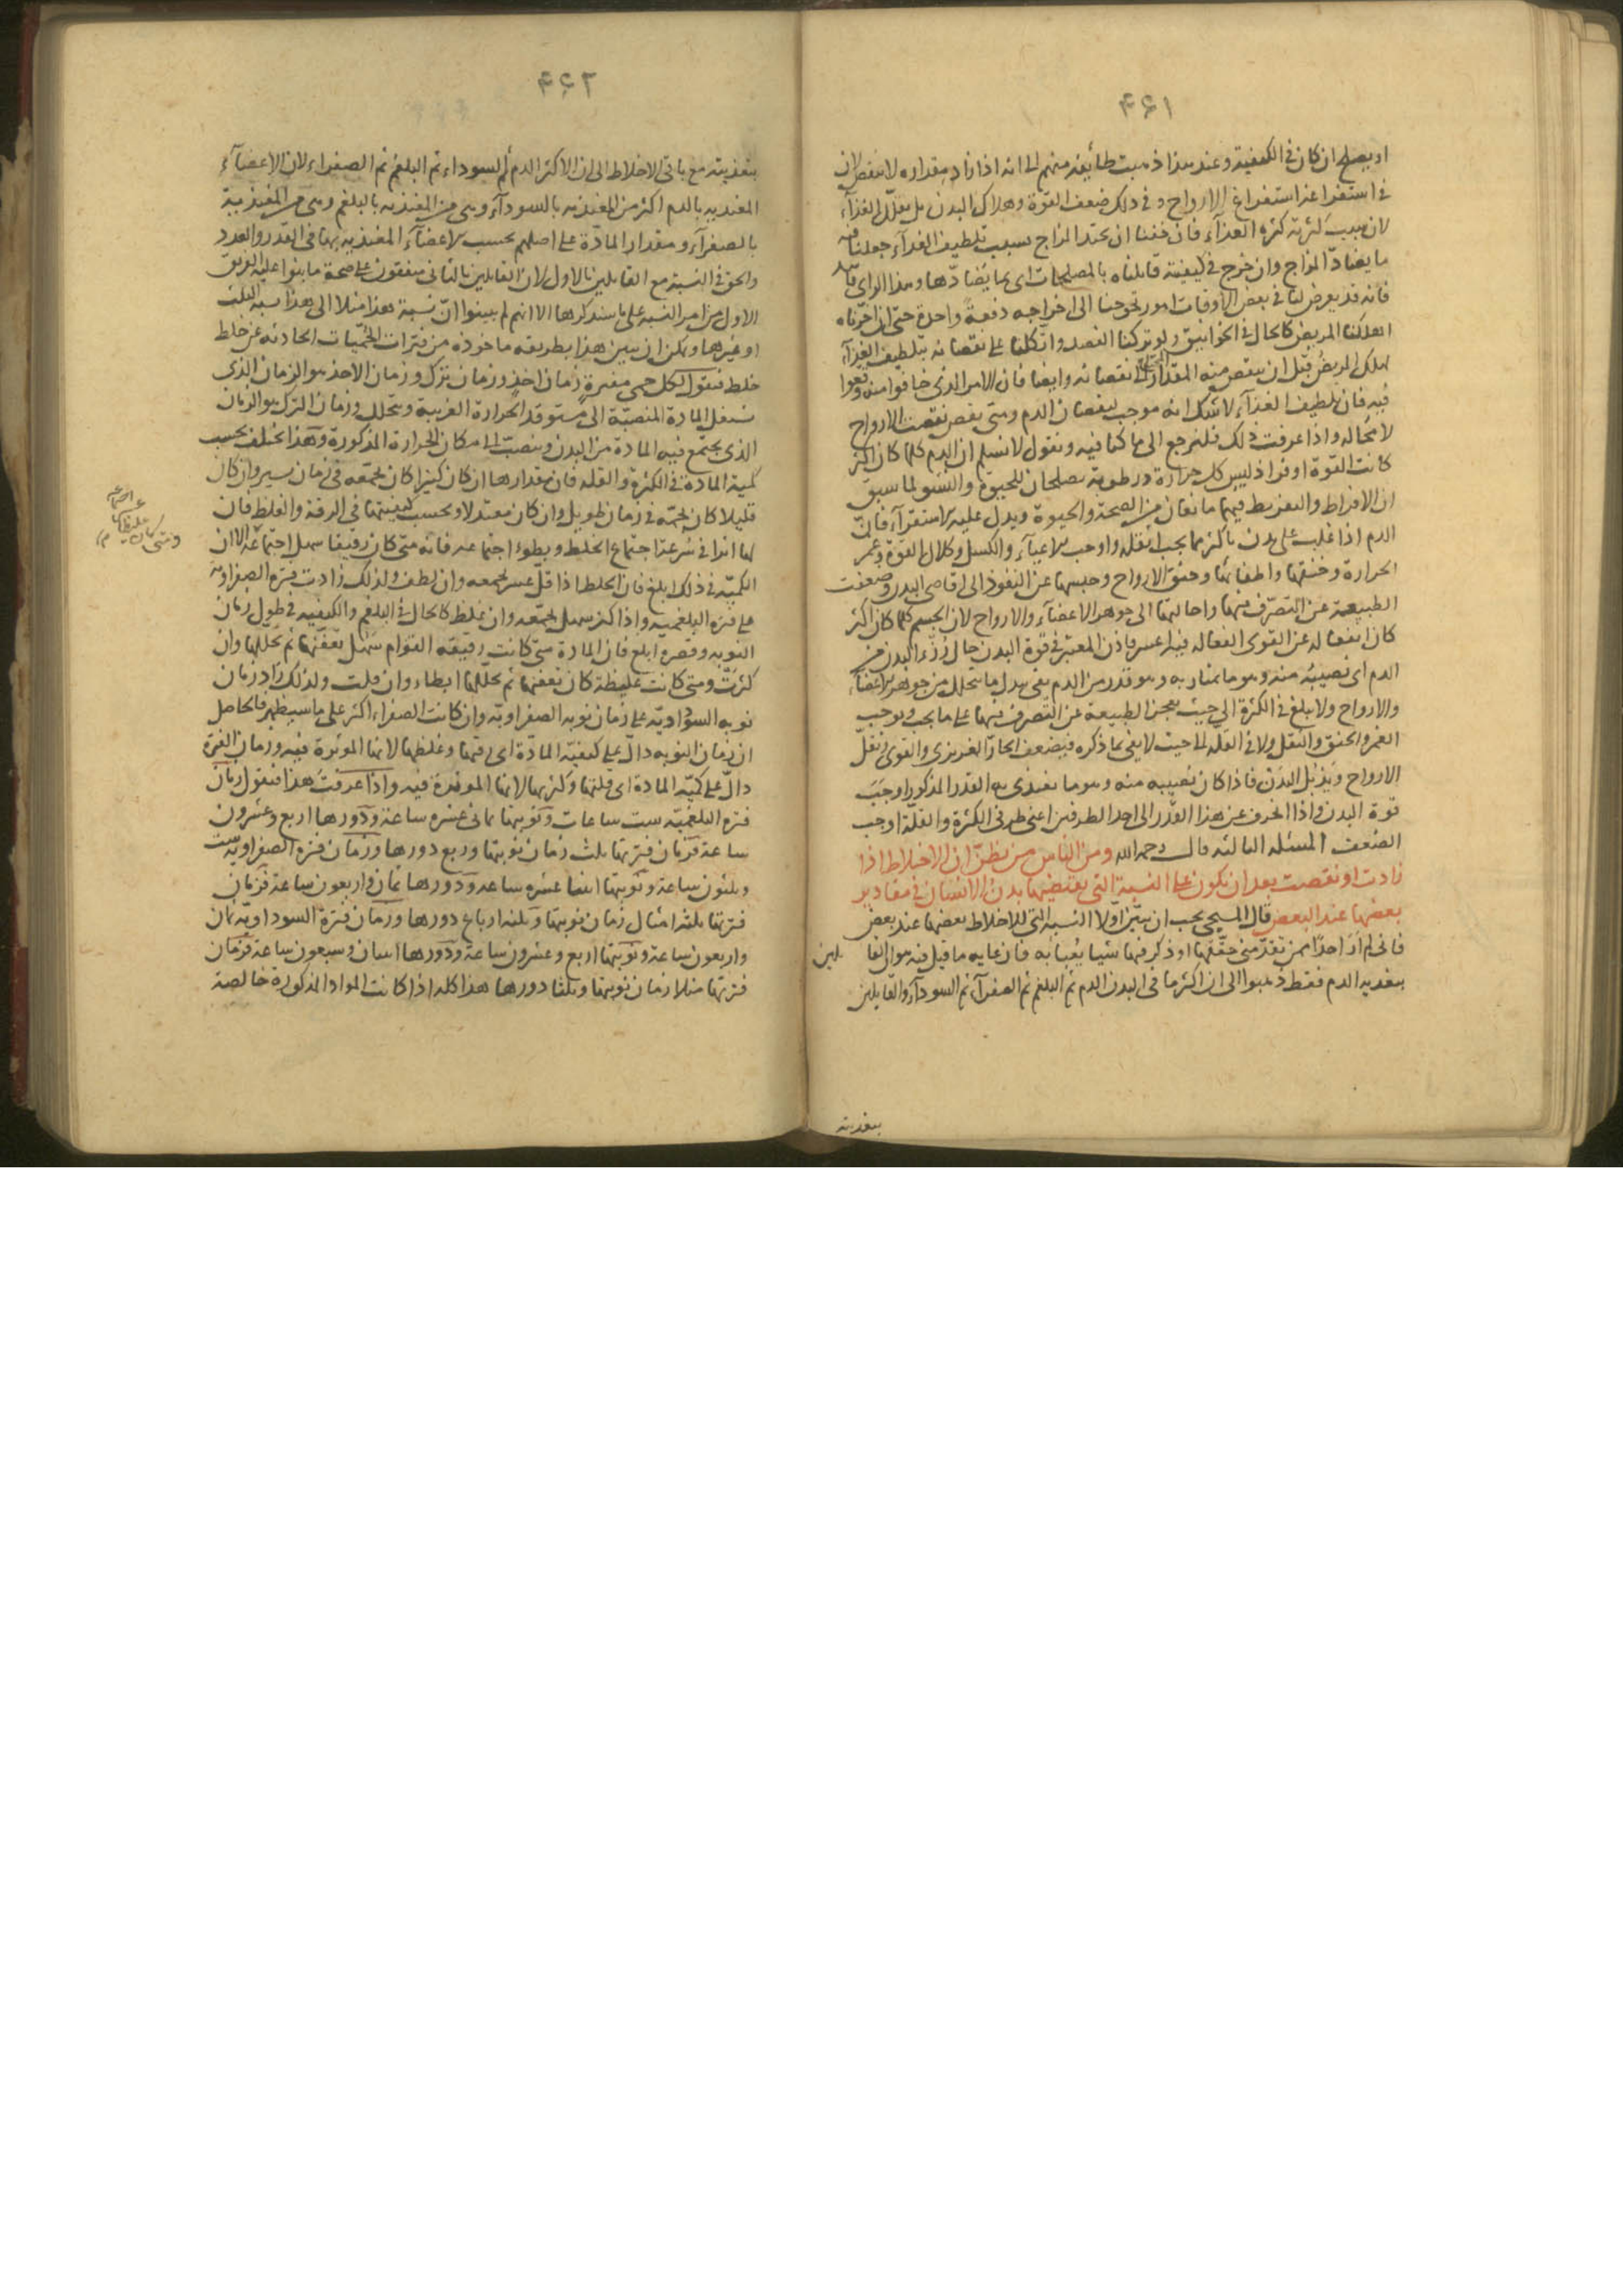 ۴۶۱
او يصلح ان كان فى الكيفية وعند هذا ذهبت طائفة منهم الى انه اذا زاد مقداره لا ينقص لان
فى استفراغه استفراغ الارواح وفى ذلك ضعف القوة وهلاك البدن بل يقلل الغذآء
لان سبب كثرته كثرة الغذآء فان خفنا ان يحتد المزاج بسبب تلطيف الغذآء جعلنا فيه
ما يضادّ المزاج وان خرج فى كيفيته قابلناه بالمصلحات اى بما يضادّها وهذا الراى فاسد
فانه قد يعرض لنا فى بعض الاوقات امور تحوجنا الى اخراجه دفعة واحدة حتى ان اخّرناه
اهلكنا المريض كالحال فى الخوانيق ولو تركنا الفصد واتكلنا على نقصانه بتلطيف الغذآء
لهلك المريض قبل ان ينقص منه المقدار نقصانه وايضا فان الامر الذى خافوا منه وقعوا
فيه فان تلطيف الغذآء لا شك انه موجب لنقصان الدم ومتى نقص نقصت الارواح
لا محاله واذا عرفت ذلك فلنرجع الى ما كنا فيه ونقول لا نسلم ان الدم كلما كان اكثر
كانت القوة اوفر اذ ليس كل حرارة ورطوبة تصلحان للحيوة والنشو لما سبق
ان الافراط والتفريط فيهما مانعان من الصحة والحيوة ويدل عليه الاستقرآء فانّ
الدم اذا غلب على بدن باكثر مما يجب اثقله واوجب الاعيآء والكسل وكلال القوة وغمر
الحرارة وخنقها واطفائها وخنق الارواح وحبسها عن النفوذ الى اقاصى البدن وضعفت
الطبيعة عن التصرّف فيها واحالتها الى جوهر الاعضآء والارواح لان الجسم كلما كان اكثر
كان انفعاله عن القوى الفعاله فيه اعسر فاذن المعتبر فى قوة البدن حال رُزء البدن من
الدم اى نصيبه منه وهو ما يمتار به وهو قدر من الدم يفى ببدل ما يتحلل من جوهر الاعضآء
والارواح ولا يبلغ فى الكثرة الى حيث يعجز الطبيعة عن التصرف فيها على ما يجب ويوجب
الغمر والخنق والثقل ولا فى القلّة الى حيث لا يفى بما ذكره فيضعف الحارّ الغريزى والقوى وتقلّ
الارواح ويذبل البدن فاذا كان نصيبه منه وهو ما يغتذى به القدر المذكور اوجب
قوة البدن واذا انحرف عن هذا القدر الى احد الطرفين اعنى طرفى الكثرة والقلّة اوجب
الضعف المسئلة الثالثه قال رحمه الله ومن الناس من يظنّ ان الاخلاط اذا
زادت او نقصت بعد ان تكون على النسبة التى يقتضيها بدن الانسان فى مقادير
بعضها عند البعض قال المسيحى يجب ان يبيّن اوّلا النسبه التى للاخلاط بعضها عند بعض
فانى لم ار احدًا ممن تقدّمنى حقّقها او ذكر فيها شيا يُعبأ به فان غايه ما قيل فيه هو ان القايلين
بتغذيه الدم فقط ذهبوا الى ان اكثر ما فى البدن الدم ثم البلغم ثم الصفرآء ثم السودآء والقايلين
بتغذيته
۴۶۲
بتغذيته مع باقى الاخلاط الى ان الاكثر الدم ثم السودآء ثم البلغم ثم الصفرآء لان الاعضآء
المغتذيه بالدم اكثر من المغتذيه بالسودآء وهى من المغتذيه بالبلغم وهى من المغتذيبة
بالصفرآء ومقدار المادّة على اصلهم بحسب الاعضآء المغتذيه بها فى القدر والعدد
والحق فى النسبة مع القايلين بالاول لان القايلين بالثانى متفقون على صحة ما بنوا عليه الفريق
الاول من امر النسبه على ما سنذكرها الا انهم لم يبينوا انّ نسبة هذا مثلا الى هذا نسبة الثلث
او غيرها ويمكن ان يبين هذا بطريقه ماخوذه من فترات الحُمّيات الحادثه عن خلط
خلط فنقول لكل حمى مفترةٍ زمان اخذٍ وزمان ترك وزمان الاخذ هو الزمان الذى
تشتعل المادة المنصبّة الى مستوقد الحرارة الغريبة وتتحلل وزمان الترك هو الزمان
الذى يجتمع فيه المادة من البدن وتنصبّ الى مكان الحرارة المذكورة وهذا يختلف بحسب
كمية المادة فى الكثرة والقلة فان مقدارها ان كان كثيرا كان تجمّعه فى زمان يسير وان كان
قليلا كان تجمّعه فى زمان طويل وان كان معتدلا وبحسب كيفيتها فى الرقة والغلظ فان
لها اثرا فى سُرعة اجتماع الخلط وبطوء اجتماعه فانه متى كان رقيقا سهل اجتماعه الا ان
الكميّه فى ذلك ابلغ فان الخلط اذا قلّ عسر تجمعه وان لطف ولذلك زادت فترة الصفراويه
على فترة البلغميه واذا كثر سهل تجمّعه وان غلظ كالحال فى البلغم والكيفيه فى طول زمان
النوبه وقصره ابلغ فان المادة متى كانت رقيقه القوام سهل تعفّنها ثم تحللها وان
كثرَت ومتى كانت غليظة كان تعفنها ثم تحللها ابطاء وان قلت ولذلك زاد زمان
نوبه السوداويّه على زمان نوبه الصفراويّه وان كانت الصفراء اكثر على ما سيظهر فالحاصل
ان زمان النوبه دالّ على كيفيّه المادّة اى رقتها وغلظها لانها الموثرة فيه وزمان الفترة
دالّ على كميّه المادة اى قلتها وكثرتها لانها الموثرة فيه واذا عرفتَ هذا فنقول زمان
فترة البلغميّه ست ساعات ونوبتها ثمانى عشره ساعة ودورها اربع وعشرون
ساعة فزمان فترتها ثلث زمان نوبتها وربع دورها وزمان فترة الصفراويّه ست
وثلثون ساعة ونوبتها اثنتا عشره ساعه ودورها ثمان واربعون ساعة فزمان
فترتها ثلثه امثال زمان نوبتها وثلثه ارباع دورها وزمان فترة السوداويّه ثمان
واربعون ساعة ونوبتها اربع وعشرون ساعة ودورها اثنان وسبعون ساعة فزمان
فترتها مثلا زمان نوبتها وثلثا دورها هذا كله اذا كانت المواد المذكورة خالصة
ومتى كان غليظا عسر اجتماعه